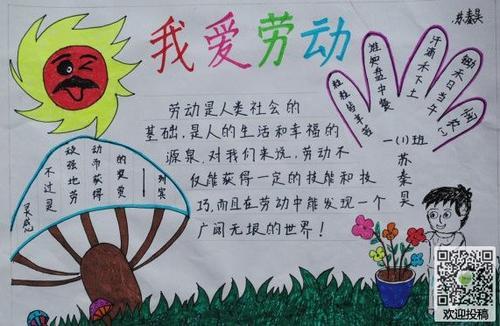 苏秦昊
我爱劳动
劳动是人类社会的
基础,是人的生活和幸福的
源泉,对我们来说,劳动不
仅能获得一定的技能和技
巧,而且在劳动中能发现一个
广阔无垠的世界!
锄禾日当午
汗滴禾下土
谁知盘中餐
粒粒皆辛苦
一(1)班
苏秦昊
不过是
顽强地劳
动而获得
的奖赏
——列宾
欢迎投稿